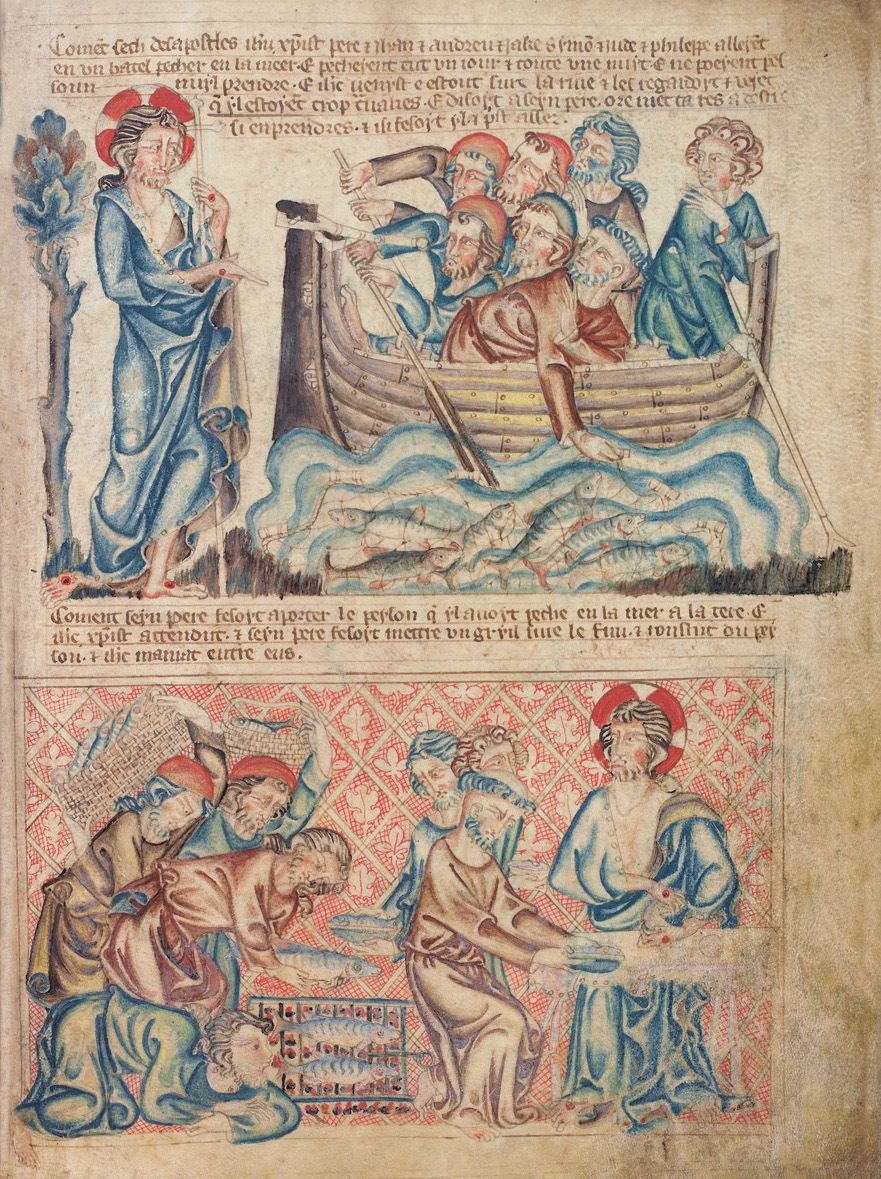 Coment sech des apostles ihu xpist pere & jhan & andreu & jake symon & jude & phileppe alleient
en un batel pecher en la meer. E pecherent tut un iour & toute une nuyt. E ne poeyent pes
soun nuyl prendre. E ihc venyst e estout sure la riue & les regardoyt & veiet
q yl estoyet trop travales. E disoyt a seyn pere. ore met ta res a destre
si en prendres. & isi fesoyt yl a pst aller.
Coment seyn pere fesoyt aporter le peyson q yl avoyt peche en la mer a la tere. E
ihc xpist attendut. & seyn pere fesoyt mettre un gryil sure le fuu. & roustut du pey
son. & ihc maniat entre eus.